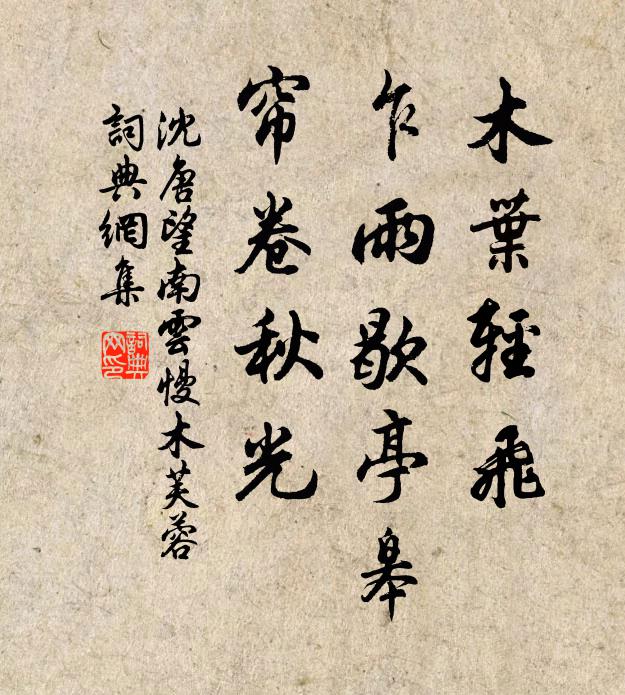 木葉輕飛
乍雨歇亭皋
帘卷秋光
沈唐望南雲慢木芙蓉
詞典網集
詞典
网印